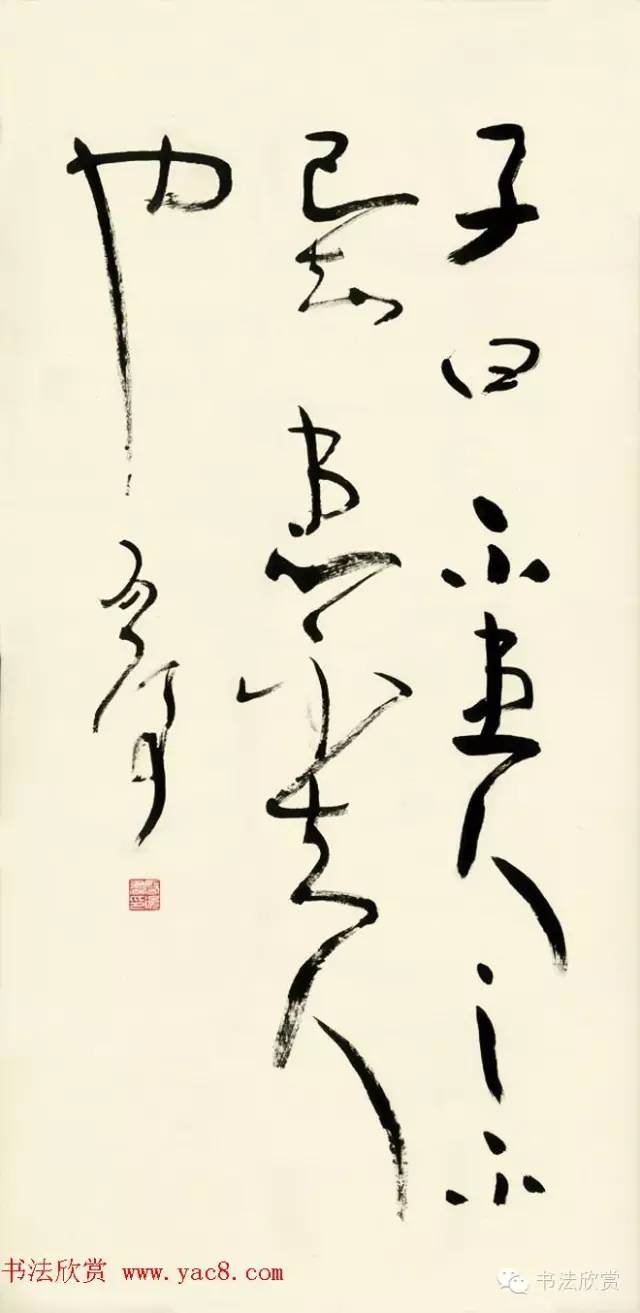 子曰不患人之不
己知患不知人
也
书法欣赏 www.yac8.com
书法欣赏